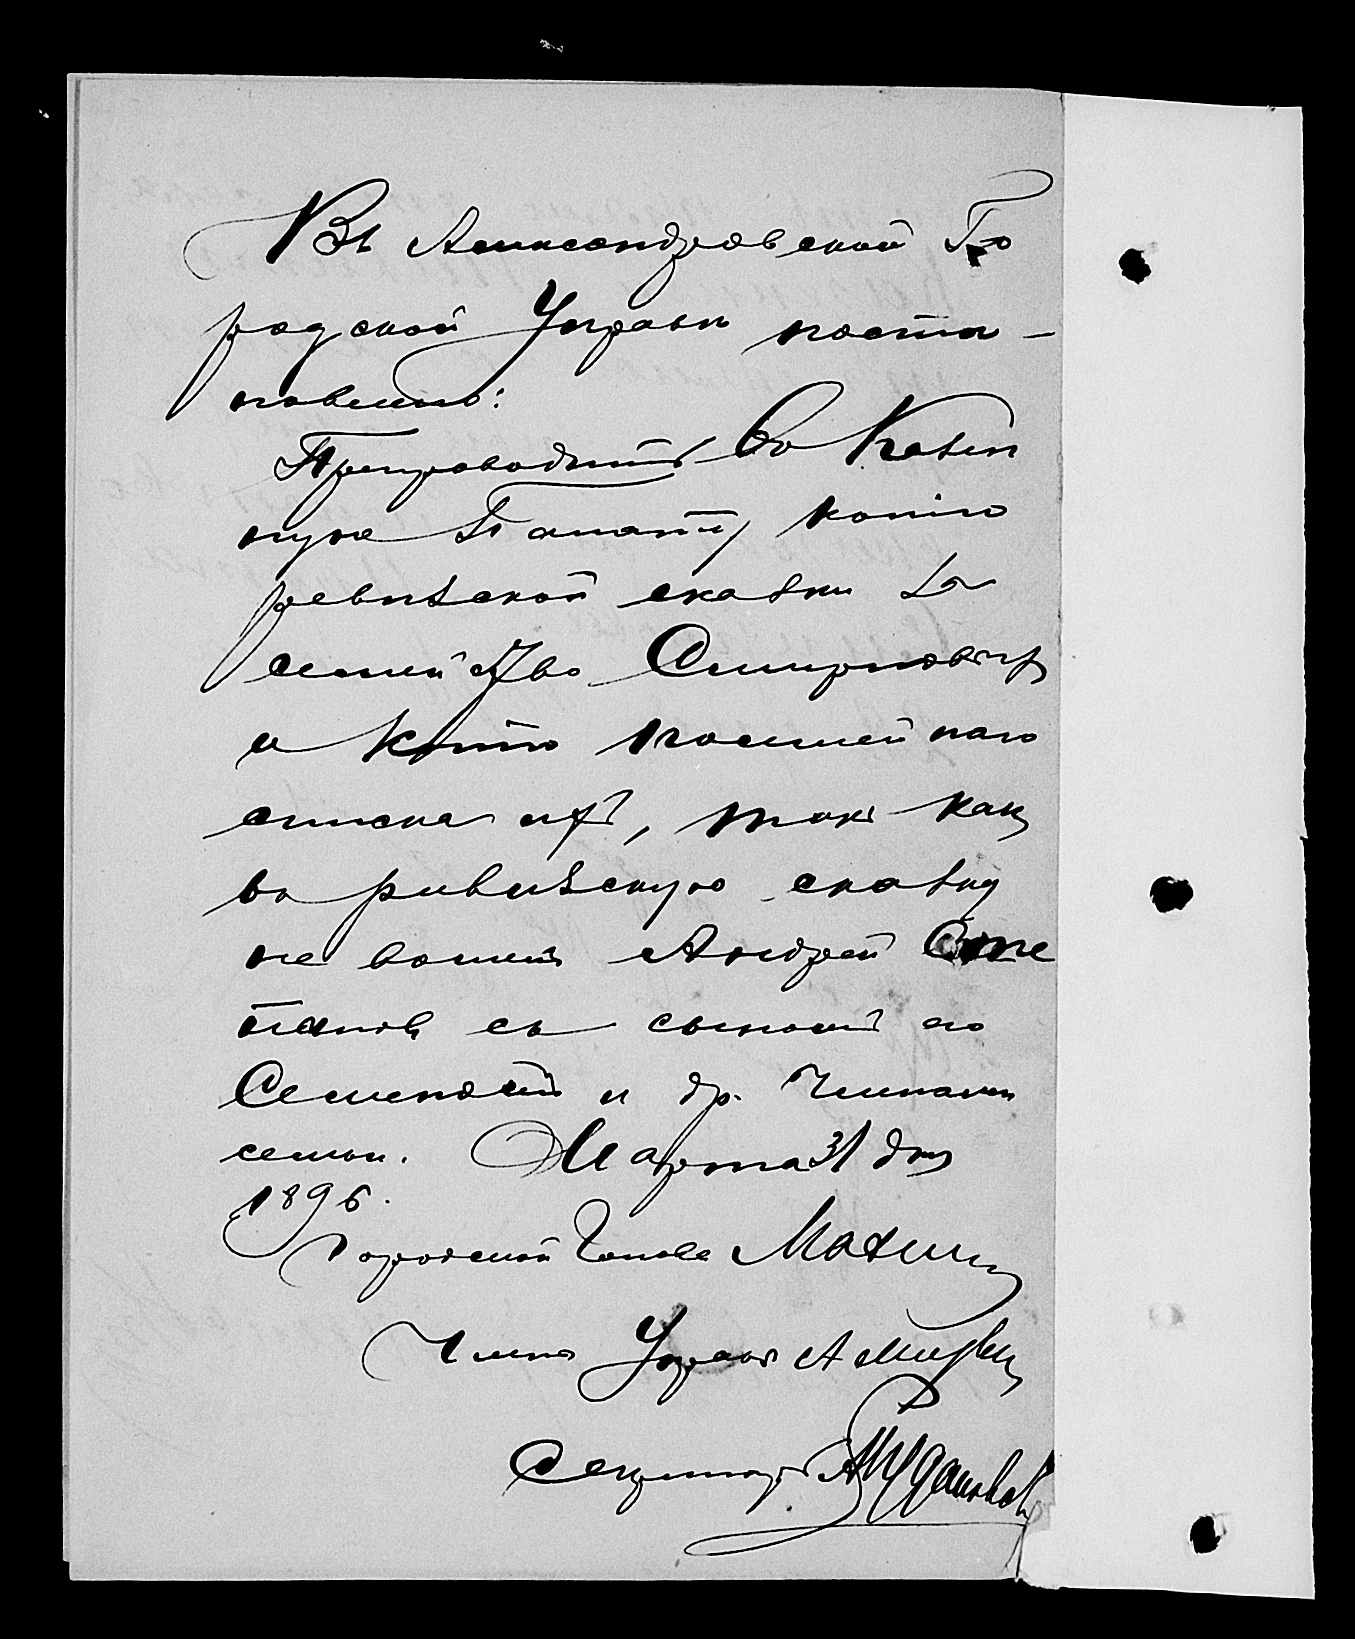 Въ Александровской Го
родской Управѣ поста-
новлено:
Препроводить въ Казен
ную Палату копію
ревизской сказки о
семействѣ Смирновыхъ
и копію посемейнаго
списка ихъ, такъ какъ
въ ревизскую сказку
не вошелъ Андрей Сте
пановъ съ сыномъ его
Семеномъ и др. членами
семьи. Марта 31 дня
1896.
Городской Голова
Членъ Управы
Секретарь